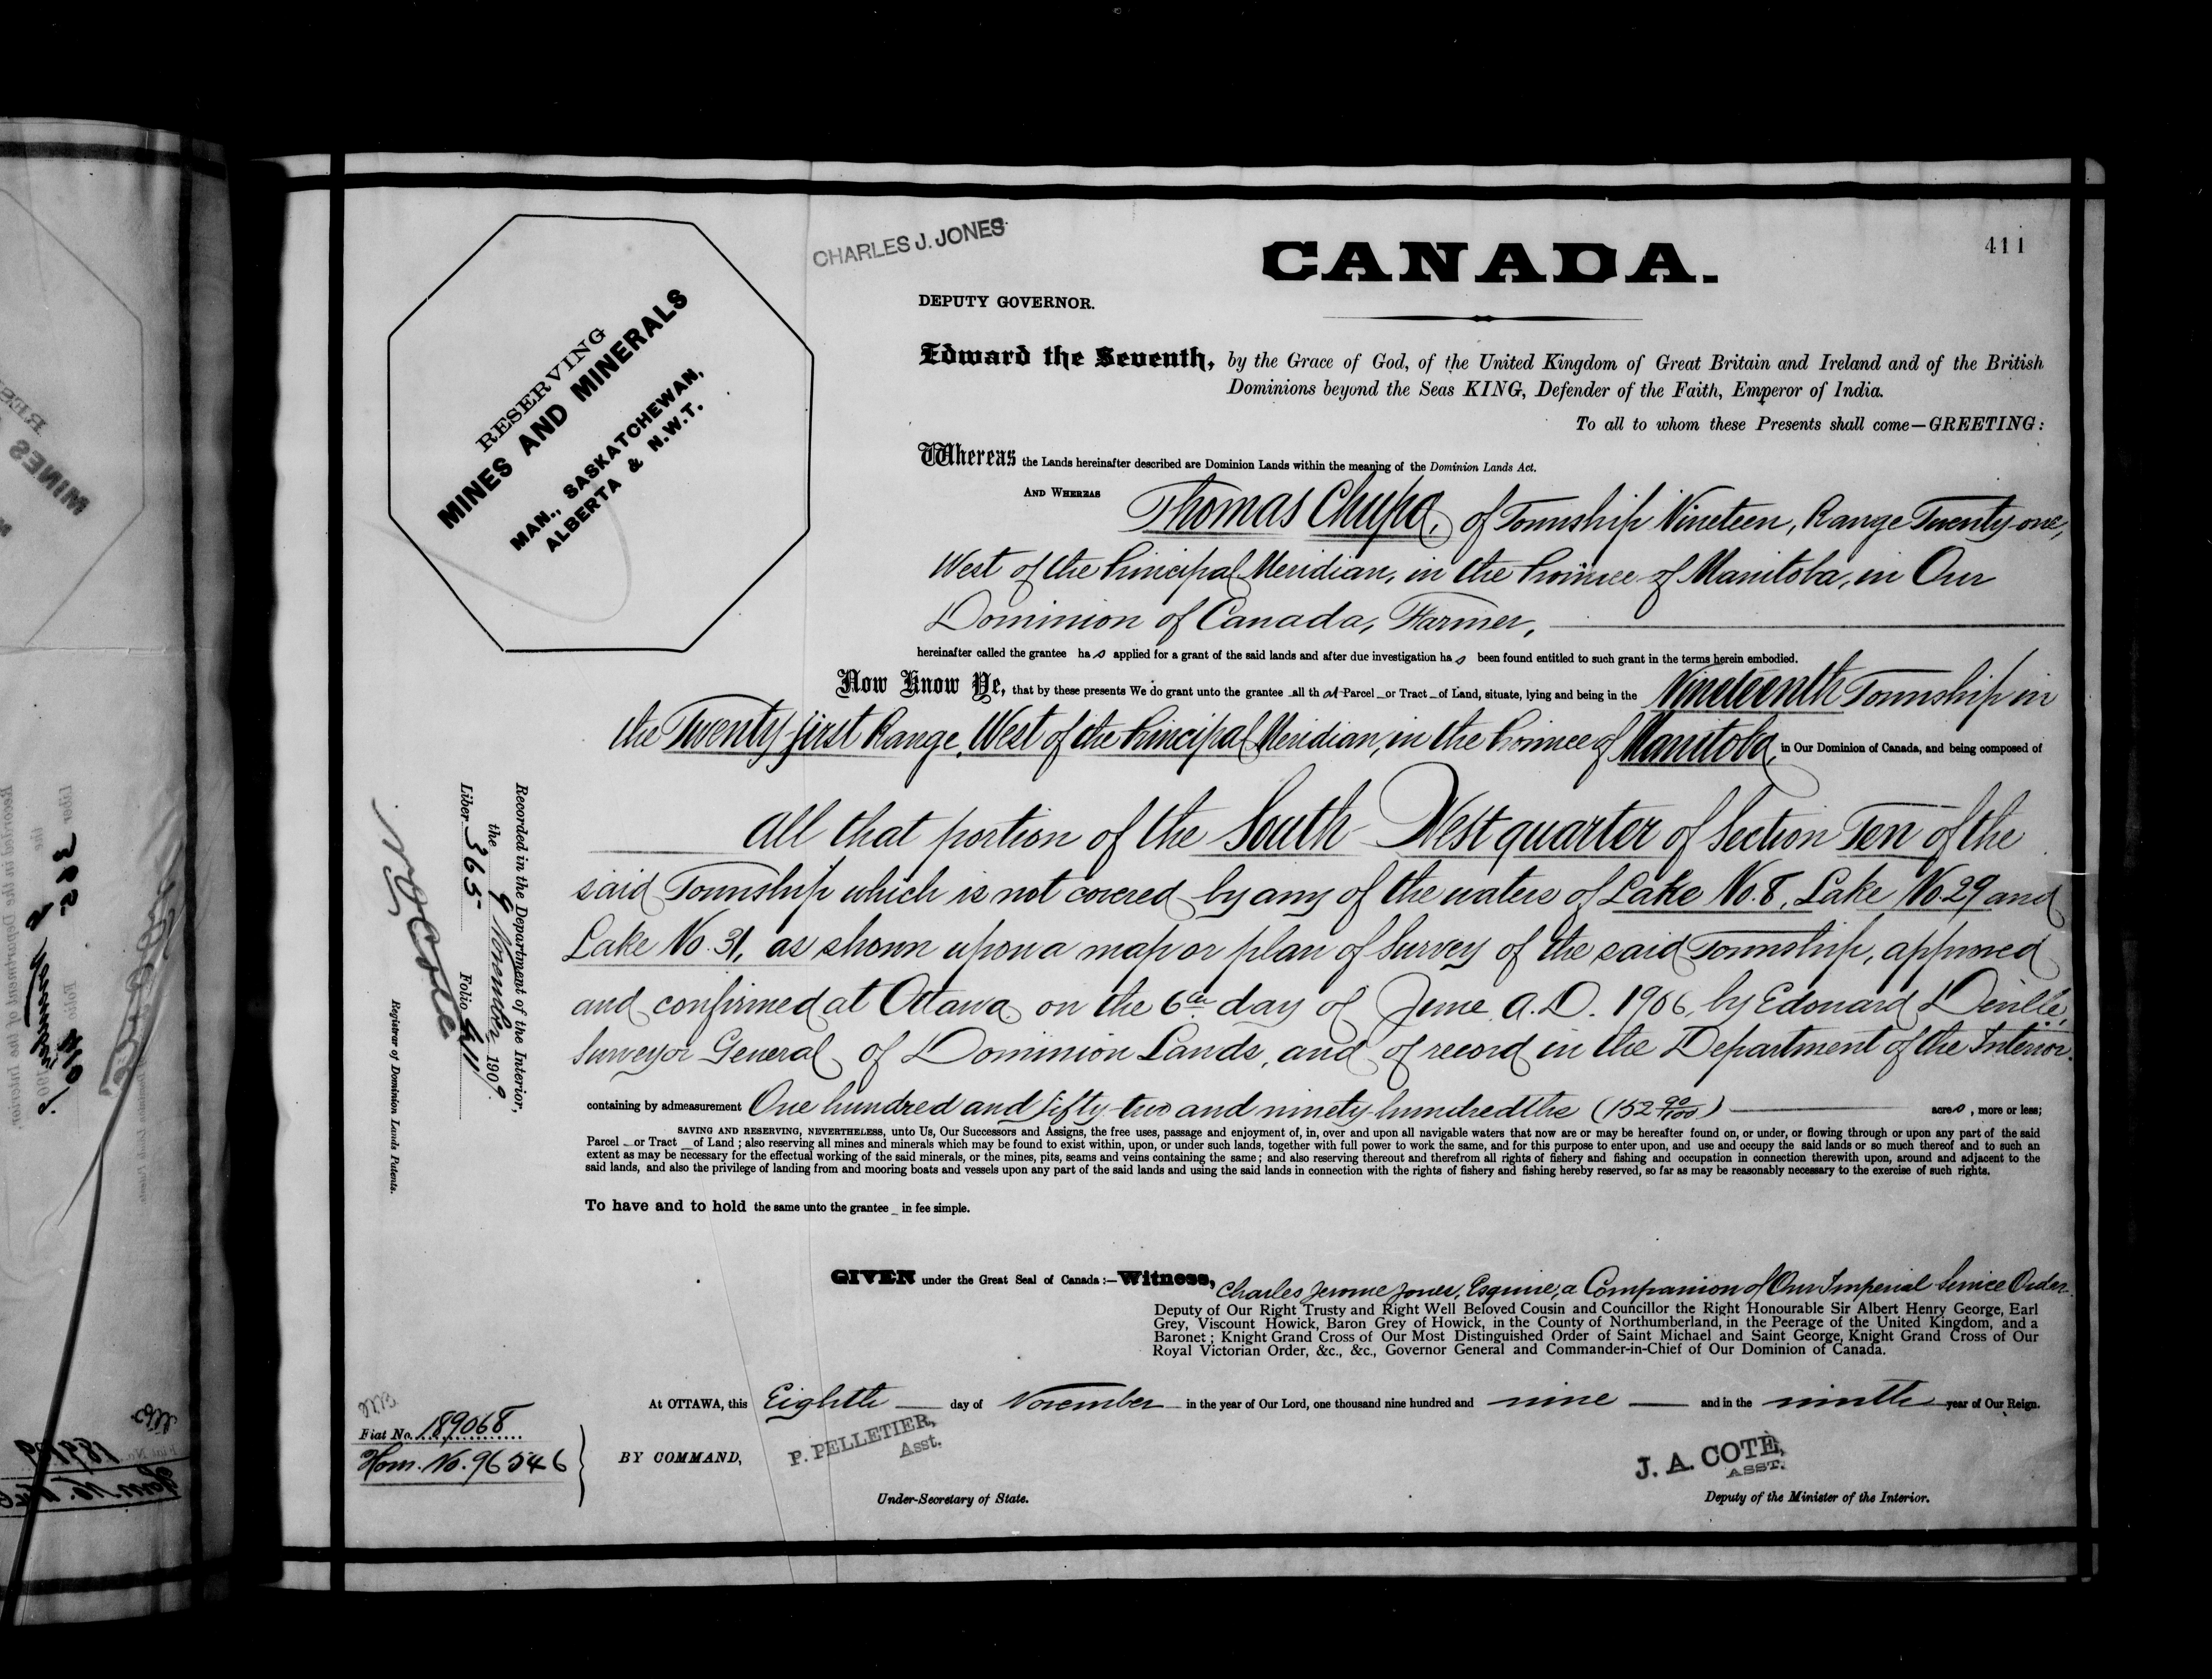 CHARLES J. JONES
CANADA.
411
DEPUTY GOVERNOR.
RESERVING
MINES AND MINERALS
MAN., SASKATCHEWAN,
ALBERTA & N.W.T.
Edward the Seventh, by the Grace of God, of the United Kingdom of Great Britain and Ireland and of the British
Dominions beyond the Seas KING, Defender of the Faith, Emperor of India.
To all to whom these Presents shall come—GREETING:
Whereas the Lands hereinafter described are Dominion Lands within the meaning of the Dominion Lands Act.
AND WHEREAS Thomas Chupa, of Township Nineteen, Range Twenty-one,
West of the Principal Meridian, in the Province of Manitoba, in Our
Dominion of Canada, Farmer,
hereinafter called the grantee has applied for a grant of the said lands and after due investigation has been found entitled to such grant in the terms herein embodied.
Now Know Ye, that by these presents We do grant unto the grantee all that Parcel or Tract of Land, situate, lying and being in the Nineteenth Township in
the Twenty-first Range, West of the Principal Meridian, in the Province of Manitoba, in Our Dominion of Canada, and being composed of
All that portion of the South-West quarter of Section Ten of the
said Township which is not covered by any of the waters of Lake No. 8, Lake No. 29 and
Lake No. 31, as shown upon a map or plan of Survey of the said Township, approved
and confirmed at Ottawa on the 6th day of June A.D. 1906, by Edouard Deville,
Surveyor General of Dominion Lands, and of record in the Department of the Interior.
containing by admeasurement One hundred and fifty-two and ninety hundredths (152 90/100) acres, more or less;
SAVING AND RESERVING, NEVERTHELESS, unto Us, Our Successors and Assigns, the free uses, passage and enjoyment of, in, over and upon all navigable waters that now are or may be hereafter found on, or under, or flowing through or upon any part of the said
Parcel or Tract of Land; also reserving all mines and minerals which may be found to exist within, upon, or under such lands, together with full power to work the same, and for this purpose to enter upon, and use and occupy the said lands or so much thereof and to such an
extent as may be necessary for the effectual working of the said minerals, or the mines, pits, seams and veins containing the same; and also reserving thereout and therefrom all rights of fishery and fishing and occupation in connection therewith upon, around and adjacent to the
said lands, and also the privilege of landing from and mooring boats and vessels upon any part of the said lands and using the said lands in connection with the rights of fishery and fishing hereby reserved, so far as may be reasonably necessary to the exercise of such rights.
To have and to hold the same unto the grantee in fee simple.
GIVEN under the Great Seal of Canada:—Witness, Charles Jerome Jones, Esquire, a Companion of Our Imperial Service Order.
Deputy of Our Right Trusty and Right Well Beloved Cousin and Councillor the Right Honourable Sir Albert Henry George, Earl
Grey, Viscount Howick, Baron Grey of Howick, in the County of Northumberland, in the Peerage of the United Kingdom, and a
Baronet; Knight Grand Cross of Our Most Distinguished Order of Saint Michael and Saint George, Knight Grand Cross of Our
Royal Victorian Order, &c., &c., Governor General and Commander-in-Chief of Our Dominion of Canada.
At OTTAWA, this Eighth day of November in the year of Our Lord, one thousand nine hundred and nine and in the ninth year of Our Reign.
BY COMMAND,
P. PELLETIER,
Asst.
Under-Secretary of State.
J. A. COTE,
ASST.
Deputy of the Minister of the Interior.
Fiat No. 189068
Hom. No. 96546
Recorded in the Department of the Interior,
the 9 November 1909
Liber 365 Folio 411
Registrar of Dominion Lands Patents.